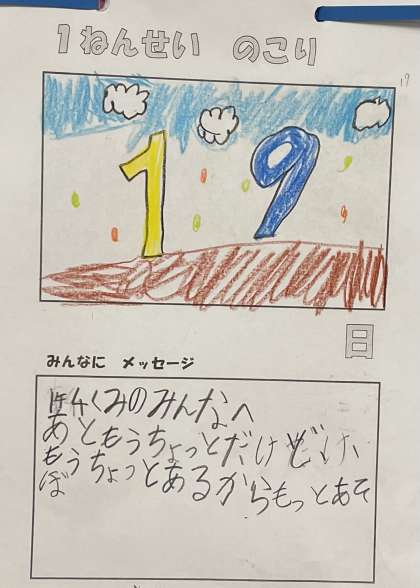 1ねんせい のこり
17
19
日
みんなに メッセージ
1ねん4くみのみんなへ
あともうちょっとだけどけど、
もうちょっとあるからもっとあそ
ぼ